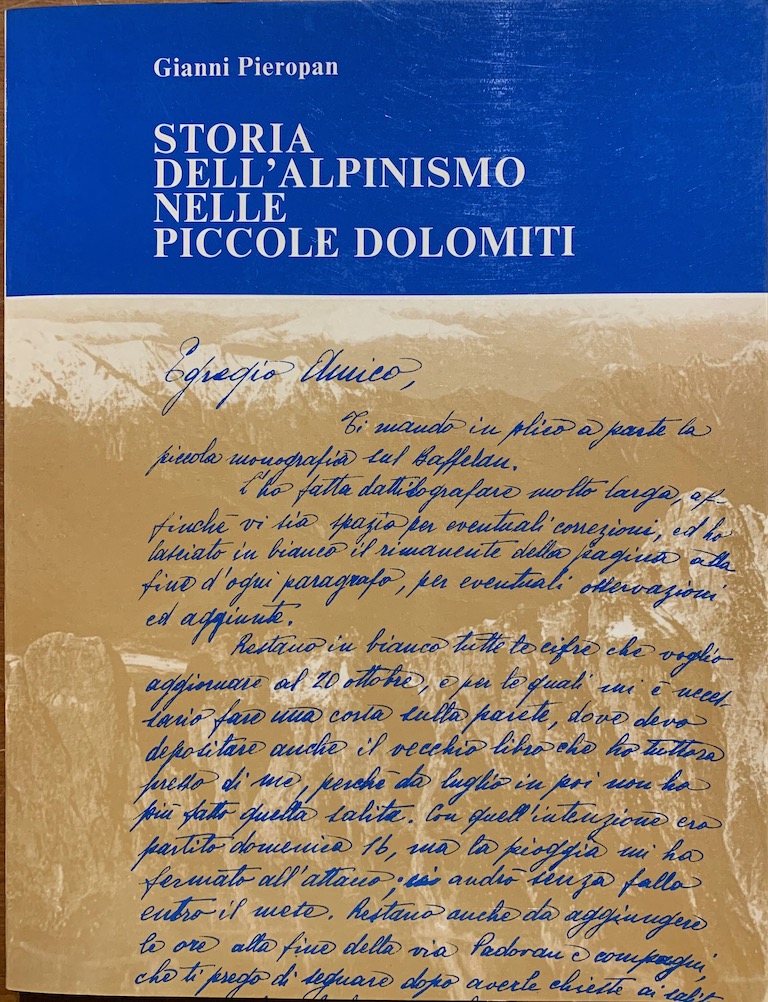 Gianni Pieropan
STORIA
DELL'ALPINISMO
NELLE
PICCOLE DOLOMITI
Egregio Amico,
Ti mando in plico a parte la
piccola monografia sul Baffelan.
L'ho fatta dattilografare molto larga, af-
finchè vi sia spazio per eventuali correzioni, ed ho
lasciato in bianco il rimanente della pagina alla
fine d'ogni paragrafo, per eventuali osservazioni
ed aggiunte.
Restano in bianco tutte le cifre che voglio
aggiornare al 20 ottobre, e per le quali mi è neces-
sario fare una corsa sulla parete, dove devo
depositare anche il vecchio libro che ho tuttora
presso di me, perchè da luglio in poi non ho
più fatto quella salita. Con quell'intenzione ero
partito domenica 16, ma la pioggia mi ha
fermato all'attacco; andrò senza fallo
entro il mese. Restano anche da aggiungere
le ore alla fine della via Padovan e compagni,
che ti prego di segnare dopo averle chieste ai